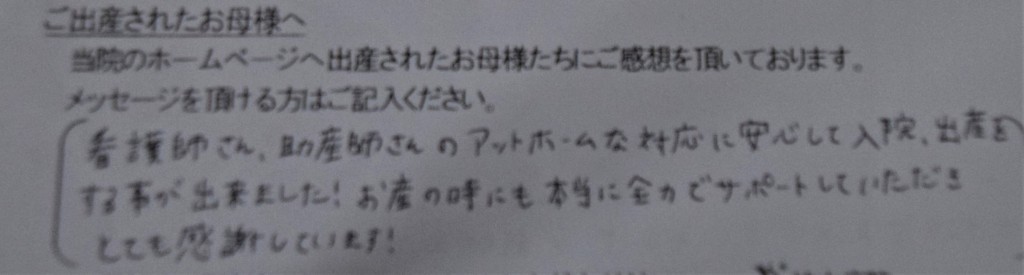 ご出産されたお母様へ
当院のホームページへ出産されたお母様たちにご感想を頂いております。
メッセージを頂ける方はご記入ください。
看護師さん、助産師さんのアットホームな対応に安心して入院、出産を
する事が出来ました!お産の時にも本当に全力でサポートしていただき
とても感謝しています!